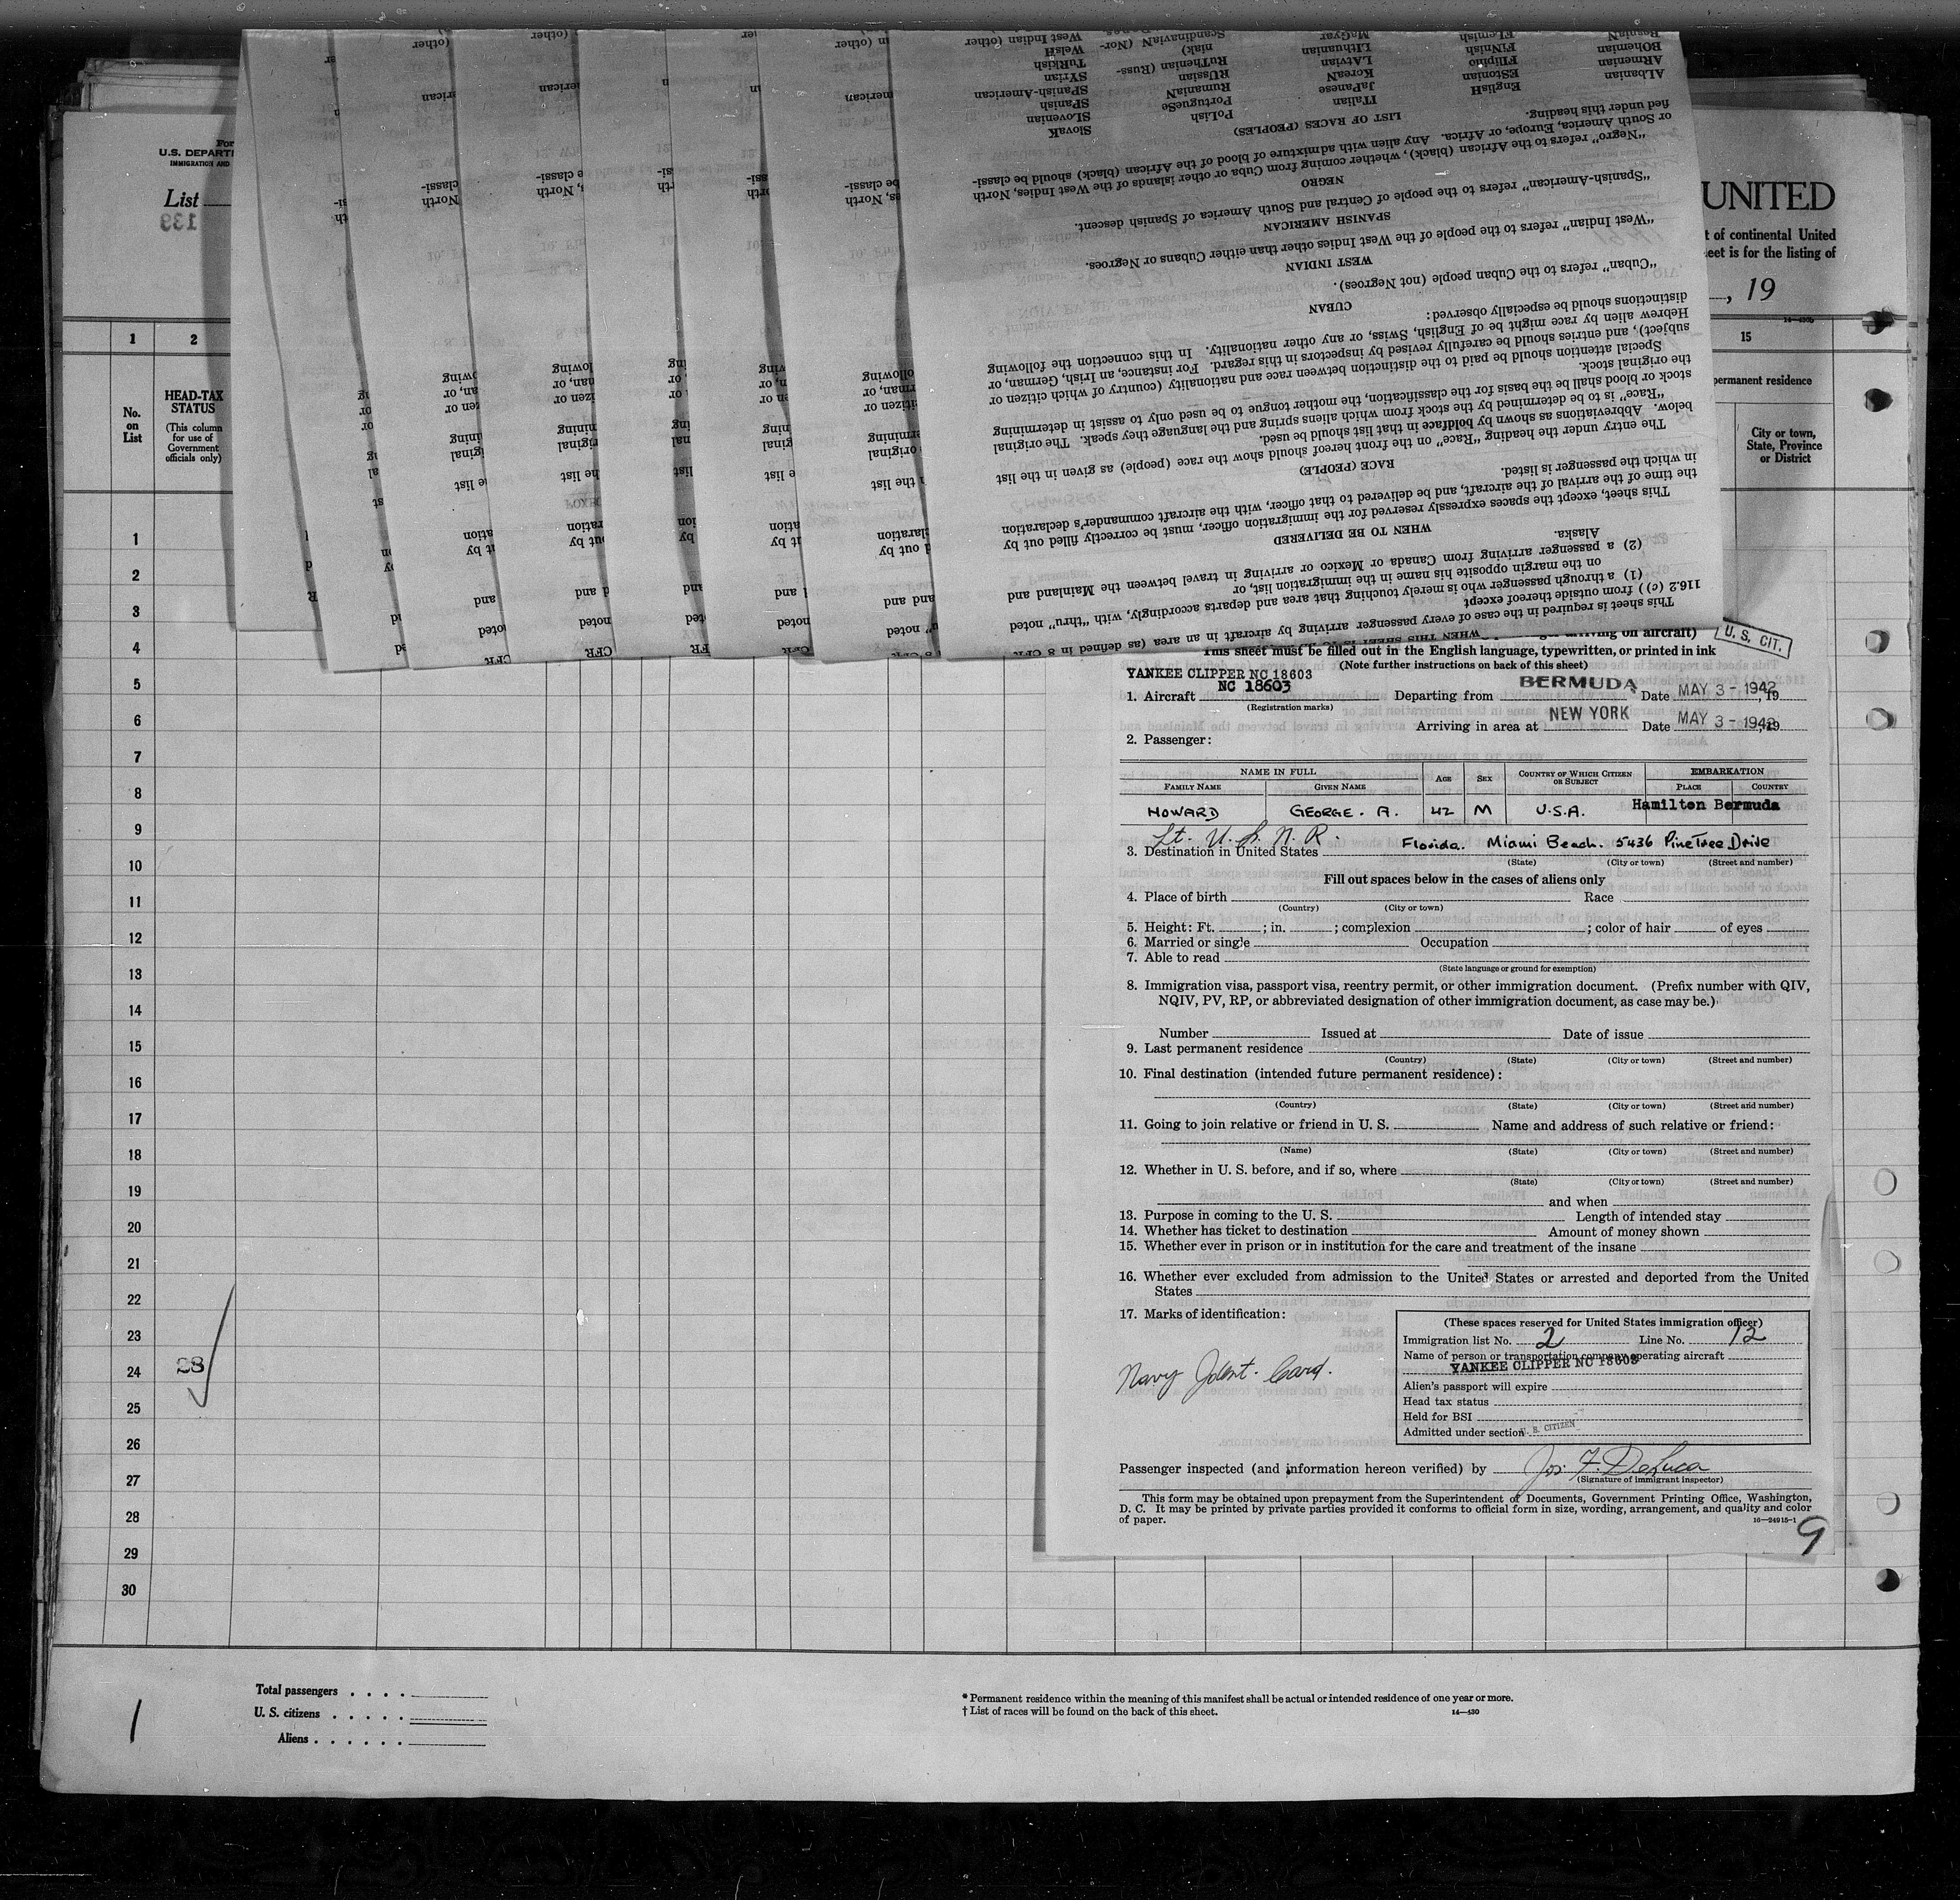 For
U.S. DEPARTM
IMMIGRATION AND
List
139
1
2
No.
on
List
HEAD-TAX
STATUS
(This column
for use of
Government
officials only)
UNITED
t of continental United
eet is for the listing of
, 19
14—430b
15
permanent residence
City or town,
State, Province
or District
1
2
3
4
5
6
7
8
9
10
11
12
13
14
15
16
17
18
19
20
21
22
23
28
24
25
26
27
28
29
30
This sheet is required in the case of every passenger arriving by aircraft in an area (as defined in 8 CFR
116.2 (c)) from outside thereof except
(1) a through passenger who is merely touching that area and departs accordingly, with "thru" noted
on the margin opposite his name in the immigration list, or
(2) a passenger arriving from Canada or Mexico or arriving in travel between the Mainland and
Alaska.
WHEN TO BE DELIVERED
This sheet, except the spaces expressly reserved for the immigration officer, must be correctly filled out by
the time of the arrival of the aircraft, and be delivered to that officer, with the aircraft commander's declaration
in which the passenger is listed.
RACE (PEOPLE)
The entry under the heading "Race" on the front hereof should show the race (people) as given in the list
below. Abbreviations as shown by boldface in that list should be used.
"Race" is to be determined by the stock from which aliens spring and the language they speak. The original
stock or blood shall be the basis for the classification, the mother tongue to be used only to assist in determining
the original stock.
Special attention should be paid to the distinction between race and nationality (country of which citizen or
subject), and entries should be carefully revised by inspectors in this regard. For instance, an Irish, German, or
Hebrew alien by race might be of English, Swiss, or any other nationality. In this connection the following
distinctions should be especially observed:
CUBAN
"Cuban" refers to the Cuban people (not Negroes).
WEST INDIAN
"West Indian" refers to the people of the West Indies other than either Cubans or Negroes.
SPANISH AMERICAN
"Spanish-American" refers to the people of Central and South America of Spanish descent.
NEGRO
"Negro" refers to the African (black), whether coming from Cuba or other islands of the West Indies, North
or South America, Europe, or Africa. Any alien with admixture of blood of the African (black) should be classi-
fied under this heading.
LIST OF RACES (PEOPLES)
ALbanian EnglisH ITalian PoLish SlovaK
ARmenian EStonian JaPanese PortugueSe SLovenian
BOhemian FIlipino KoreaN RumaniaN SPanish
BosniaN FiNnish LAtvian RUssian SPanish-American
FLemish LIthuanian RuThenian (Russ- SYrian
MaGyar niak) TuRkish
ScandinaviaN (Nor- WelsH
West Indian (other
arriving on aircraft)
U. S. CIT.
This sheet must be filled out in the English language, typewritten, or printed in ink
(Note further instructions on back of this sheet)
YANKEE CLIPPER NC 18603
NC 18603
1. Aircraft Departing from BERMUDA Date MAY 3 - 1942, 19
(Registration marks)
Arriving in area at NEW YORK Date MAY 3 - 1942, 19
2. Passenger:
NAME IN FULL AGE SEX COUNTRY OF WHICH CITIZEN OR SUBJECT EMBARKATION
FAMILY NAME GIVEN NAME PLACE COUNTRY
HOWARD GEORGE. A. 42 M U.S.A. Hamilton Bermuda
Lt. U.S.N.R.
3. Destination in United States Florida. Miami Beach. 5436 PineTree Drive
(State) (City or town) (Street and number)
Fill out spaces below in the cases of aliens only
4. Place of birth Race
(Country) (City or town)
5. Height: Ft. ; in. ; complexion ; color of hair of eyes
6. Married or single Occupation
7. Able to read
(State language or ground for exemption)
8. Immigration visa, passport visa, reentry permit, or other immigration document. (Prefix number with QIV,
NQIV, PV, RP, or abbreviated designation of other immigration document, as case may be.)
Number Issued at Date of issue
9. Last permanent residence
(Country) (State) (City or town) (Street and number)
10. Final destination (intended future permanent residence):
(Country) (State) (City or town) (Street and number)
11. Going to join relative or friend in U. S. Name and address of such relative or friend:
(Name) (State) (City or town) (Street and number)
12. Whether in U. S. before, and if so, where
(State) (City or town) (Street and number)
and when
13. Purpose in coming to the U. S. Length of intended stay
14. Whether has ticket to destination Amount of money shown
15. Whether ever in prison or in institution for the care and treatment of the insane
16. Whether ever excluded from admission to the United States or arrested and deported from the United
States
17. Marks of identification:
Navy Ident. Card.
(These spaces reserved for United States immigration officer)
Immigration list No. 2 Line No. 12
Name of person or transportation company operating aircraft
YANKEE CLIPPER NC 18603
Alien's passport will expire
Head tax status
Held for BSI
Admitted under section U. S. CITIZEN
Passenger inspected (and information hereon verified) by Jos. F. DeLuca
(Signature of immigrant inspector)
This form may be obtained upon prepayment from the Superintendent of Documents, Government Printing Office, Washington,
D. C. It may be printed by private parties provided it conforms to official form in size, wording, arrangement, and quality and color
of paper.
16—24915-1
9
1
Total passengers
U. S. citizens
Aliens
* Permanent residence within the meaning of this manifest shall be actual or intended residence of one year or more.
† List of races will be found on the back of this sheet.
14—430